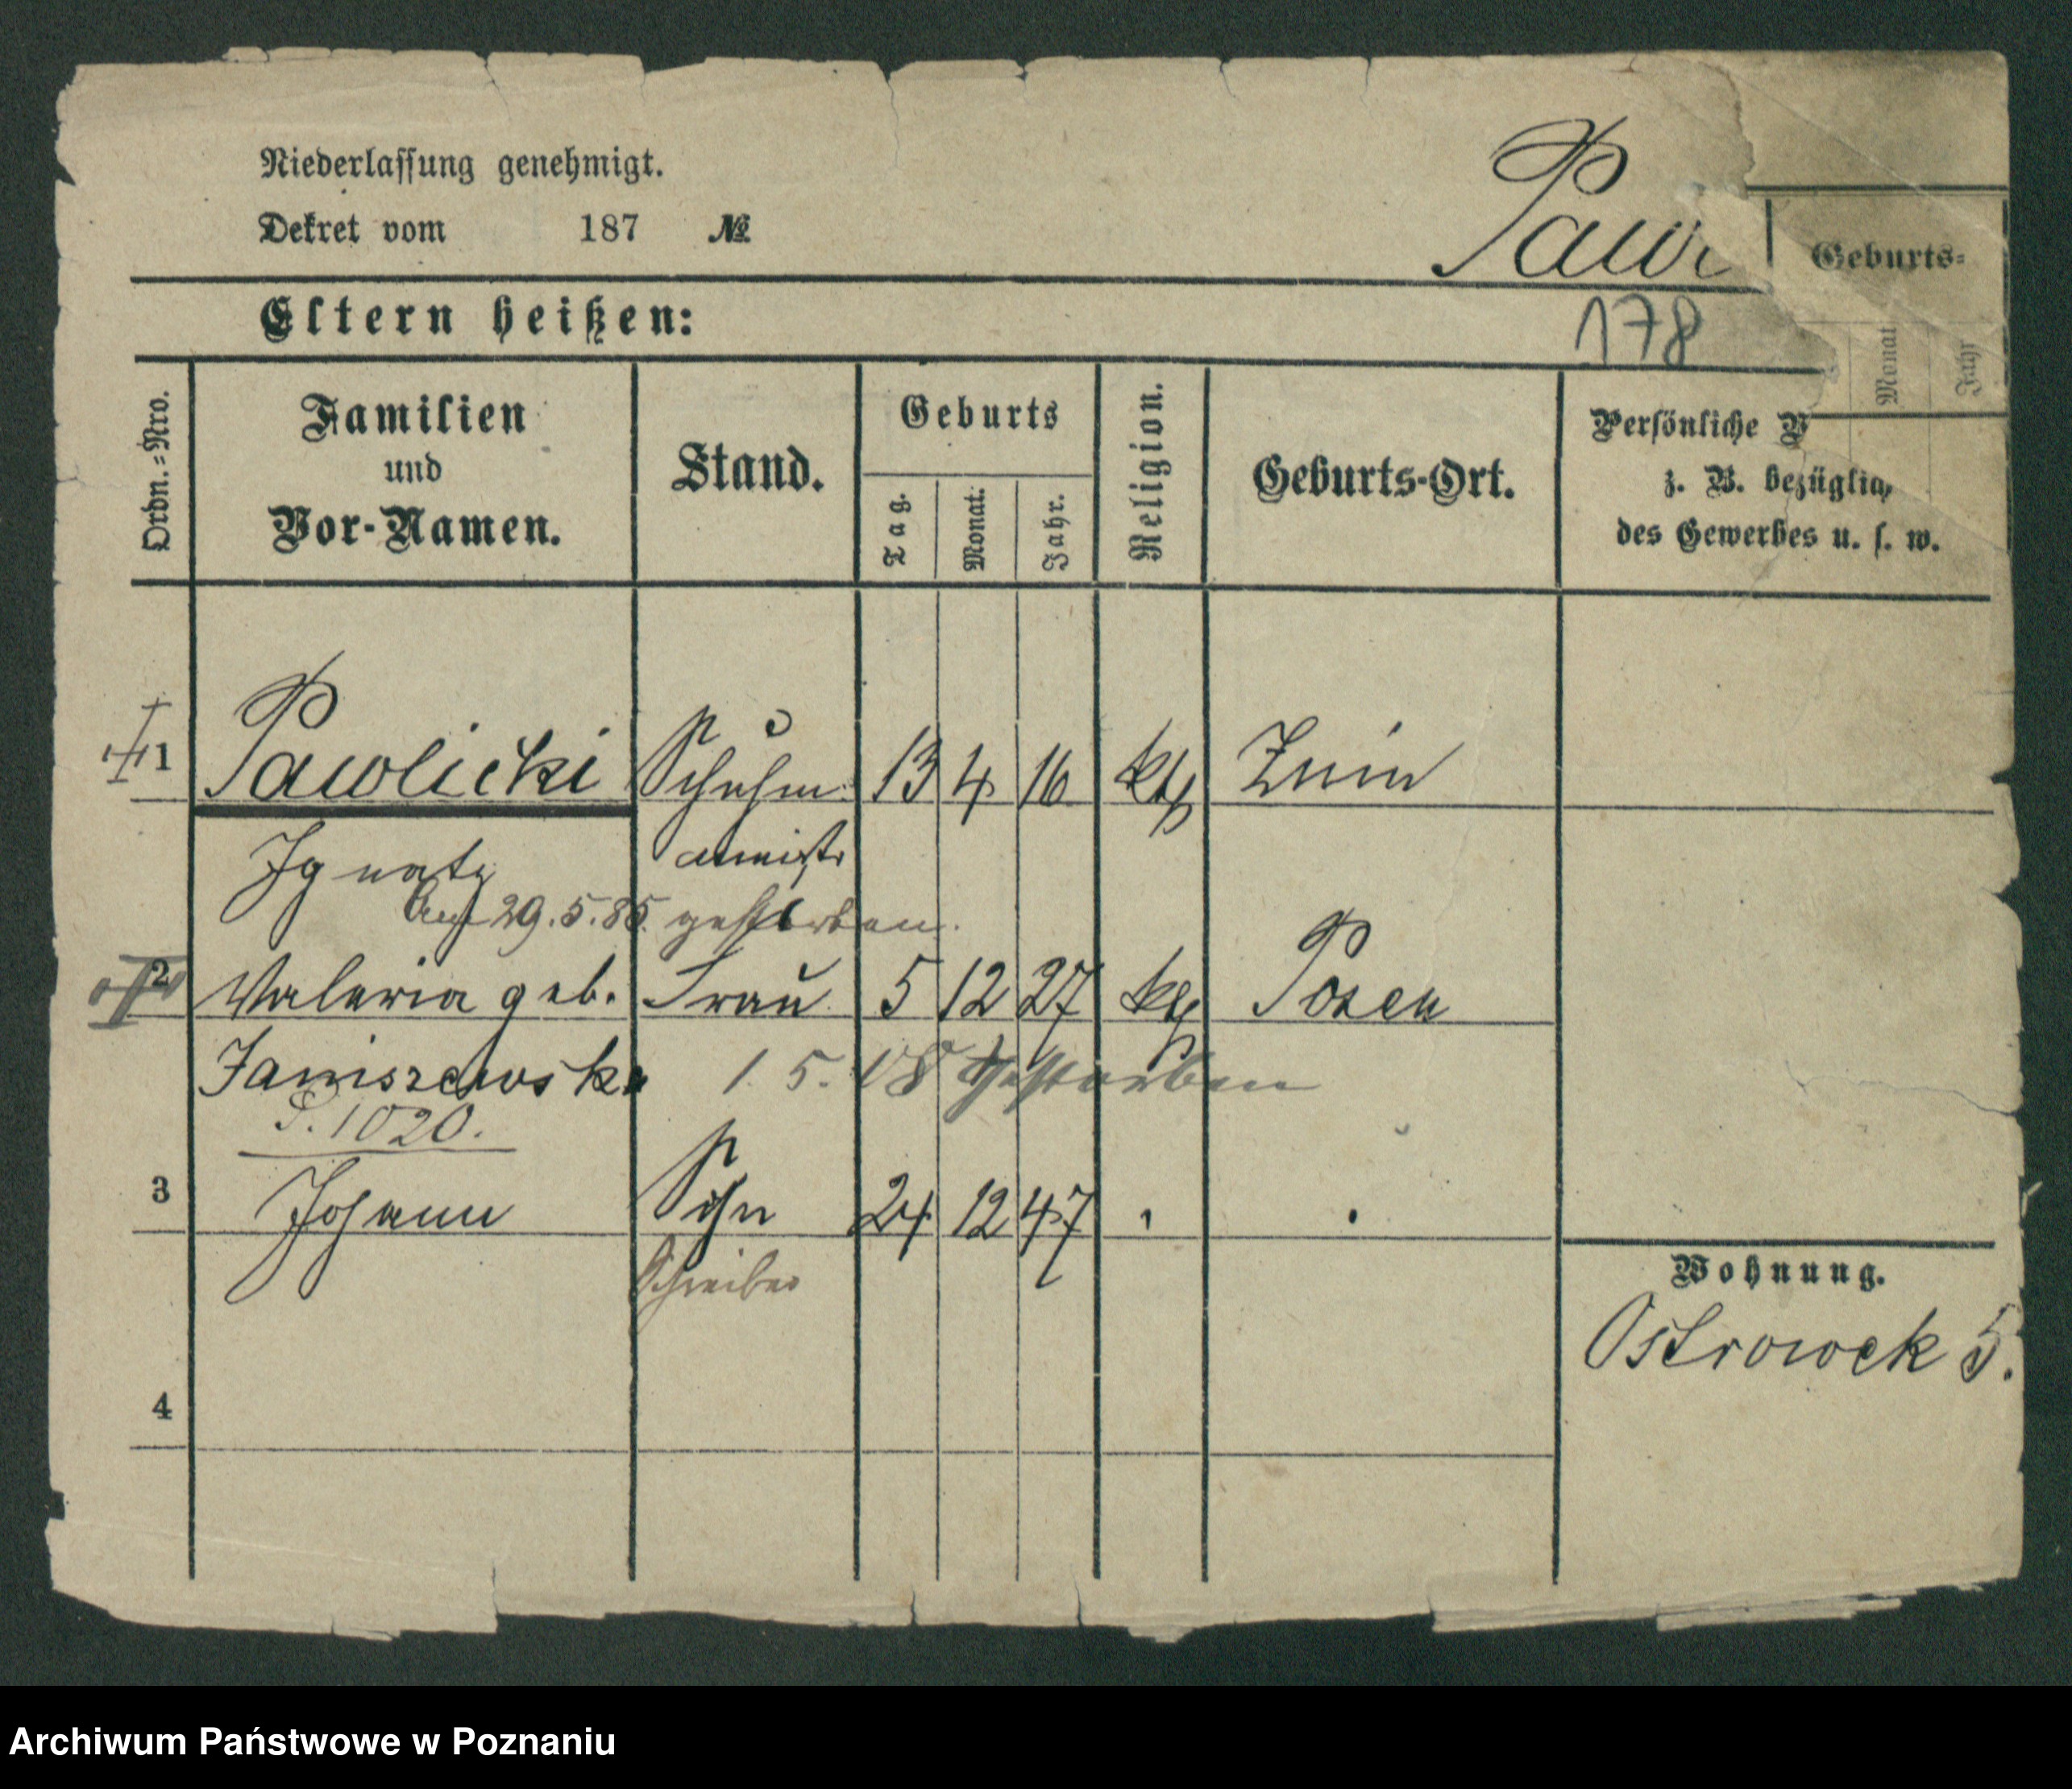 Niederlassung genehmigt.
Dekret vom 187 №
Pawl
Geburts-
Monat Jahr
Eltern heißen:
178
Ordn.-Nro. Familien und Vor-Namen. Stand. Geburts Tag. Monat. Jahr. Religion. Geburts-Ort. Persönliche V
z. B. bezüglich
des Gewerbes u. s. w.
1 Pawlicki Schuhm. 13 4 16 kth Znin
Ignatz
Am 29.5.85. gestorben.
2 Valeria geb. Frau 5 12 27 kth Posen
Janiszewska 1. 5. 08 gestorben
P. 1020.
3 Johann Sohn 24 12 47
Schreiber
Wohnung.
Ostrowek 5.
4
Archiwum Państwowe w Poznaniu